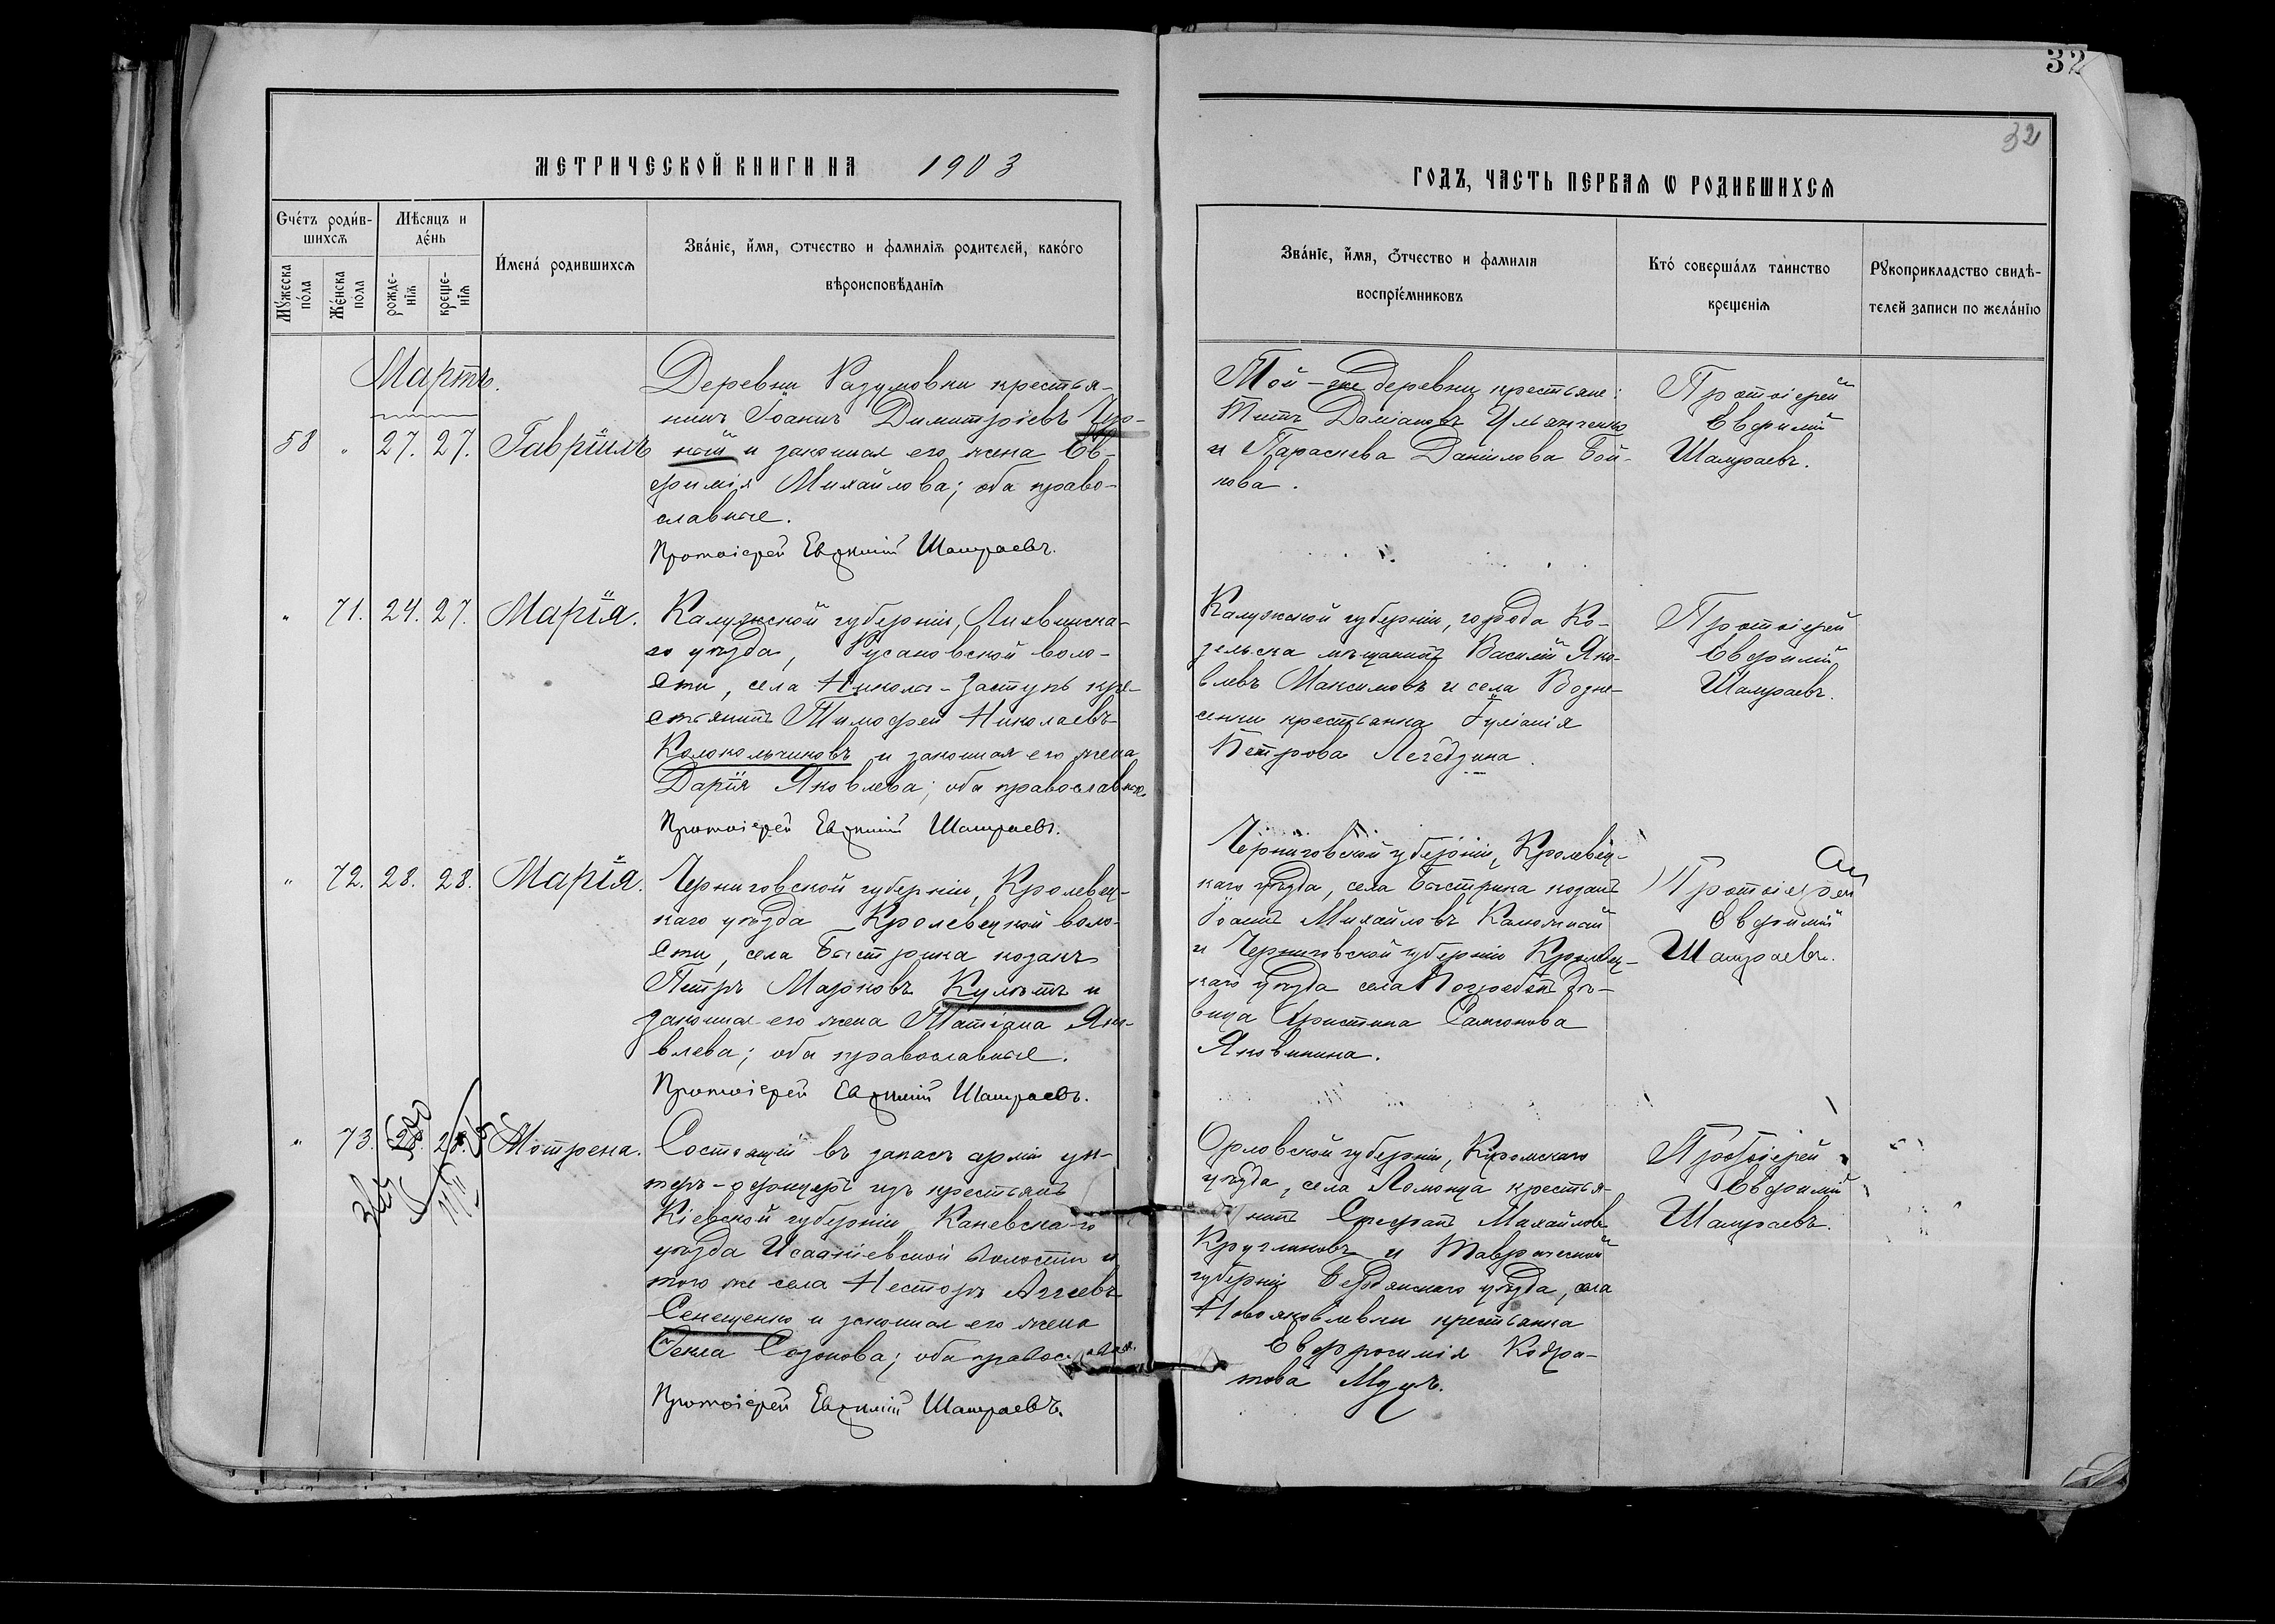 32
32
МЕТРИЧЕСКОЙ КНИГИ НА 1903
ГОДЪ, ЧАСТЬ ПЕРВАѦ Ѡ РОДИВШИХСѦ
Счéтъ роди́в-
шихсѧ
Мѣ́сяцъ и
де́нь
Мꙋ́жеска
по́ла
Же́нска
по́ла
рожде-
нїѧ
креще-
нїѧ
И҆мена́ родившихсѧ
Зва́нїе, и҆́мя, ѻтчество и фамилїѧ родителей, како́го
вѣроисповѣ́данїѧ
Зва́нїе, и҆́мя, ѻтчество и фамилїя
воспрїе́мниковъ
Кто́ соверша́лъ таинство
крещенїѧ
Рꙋкоприкладство свидѣ-
телей записи по жела́нїю
Мартъ.
58 " 27. 27. Гаврїилъ
Деревни Разумовки крестья-
нинъ Іоаннъ Димитріевъ Чор-
ный и законная его жена Ев-
фимія Михайлова; оба право-
славные.
Протоіерей Евфимій Шамраевъ.
Той-же деревни крестьяне:
Титъ Даміановъ Ульянченко
и Параскева Даніилова Бой-
кова.
Протоіерей
Евфимій
Шамраевъ.
" 71. 24. 27. Марїя.
Калужской губерніи, Лихвинска-
го уѣзда, Русановской воло-
сти, села Никола-Заступъ кре-
стьянинъ Тимофей Николаевъ
Колокольчиковъ и законная его жена
Дарїя Яковлева; оба православные.
Протоіерей Евфимій Шамраевъ.
Калужской губерніи, города Ко-
зельска мѣщанинъ Василій Яко-
влевъ Максимовъ и села Возне-
сенки крестьянка Іуліанія
Петрова Легедзина.
Протоіерей
Евфимій
Шамраевъ.
" 72. 28. 28. Марїя.
Черниговской губерніи, Кролевец-
каго уѣзда Кролевецкой воло-
сти, села Быстрика козакъ
Петръ Марковъ Кулетъ и
законная его жена Татіана Яко-
влева; оба православные.
Протоіерей Евфимій Шамраевъ.
Черниговской губерніи, Кролевец-
каго уѣзда, села Быстрика козакъ
Іоаннъ Михайловъ
и Черниговской губерніи Кролевец-
каго уѣзда села Погребки дѣ-
вица Христина Самсонова
Яковинина.
Протоіерей
Евфимій
Шамраевъ.
" 73. 28. 28. Мотрона.
Состоящій въ запасѣ арміи ун-
теръ-офицеръ изъ крестьянъ
Кіевской губерніи Каневска-го
уѣзда Исааніевской волости и
того же села Несторъ Аггеевъ
Сенещенко и законная его жена
Ѳекла Созонова; оба правосл.
Протоіерей Евфимій Шамраевъ.
Орловской губерніи, Кромскаго
уѣзда, села Ломовца крестья-
нинъ Стефанъ Михайловъ
Кругликовъ и Таврической
губерніи Бердянскаго уѣзда, села
Новояковлевки крестьянка
Евфросинія Кодра-
това Муцъ.
Протоіерей
Евфимій
Шамраевъ.